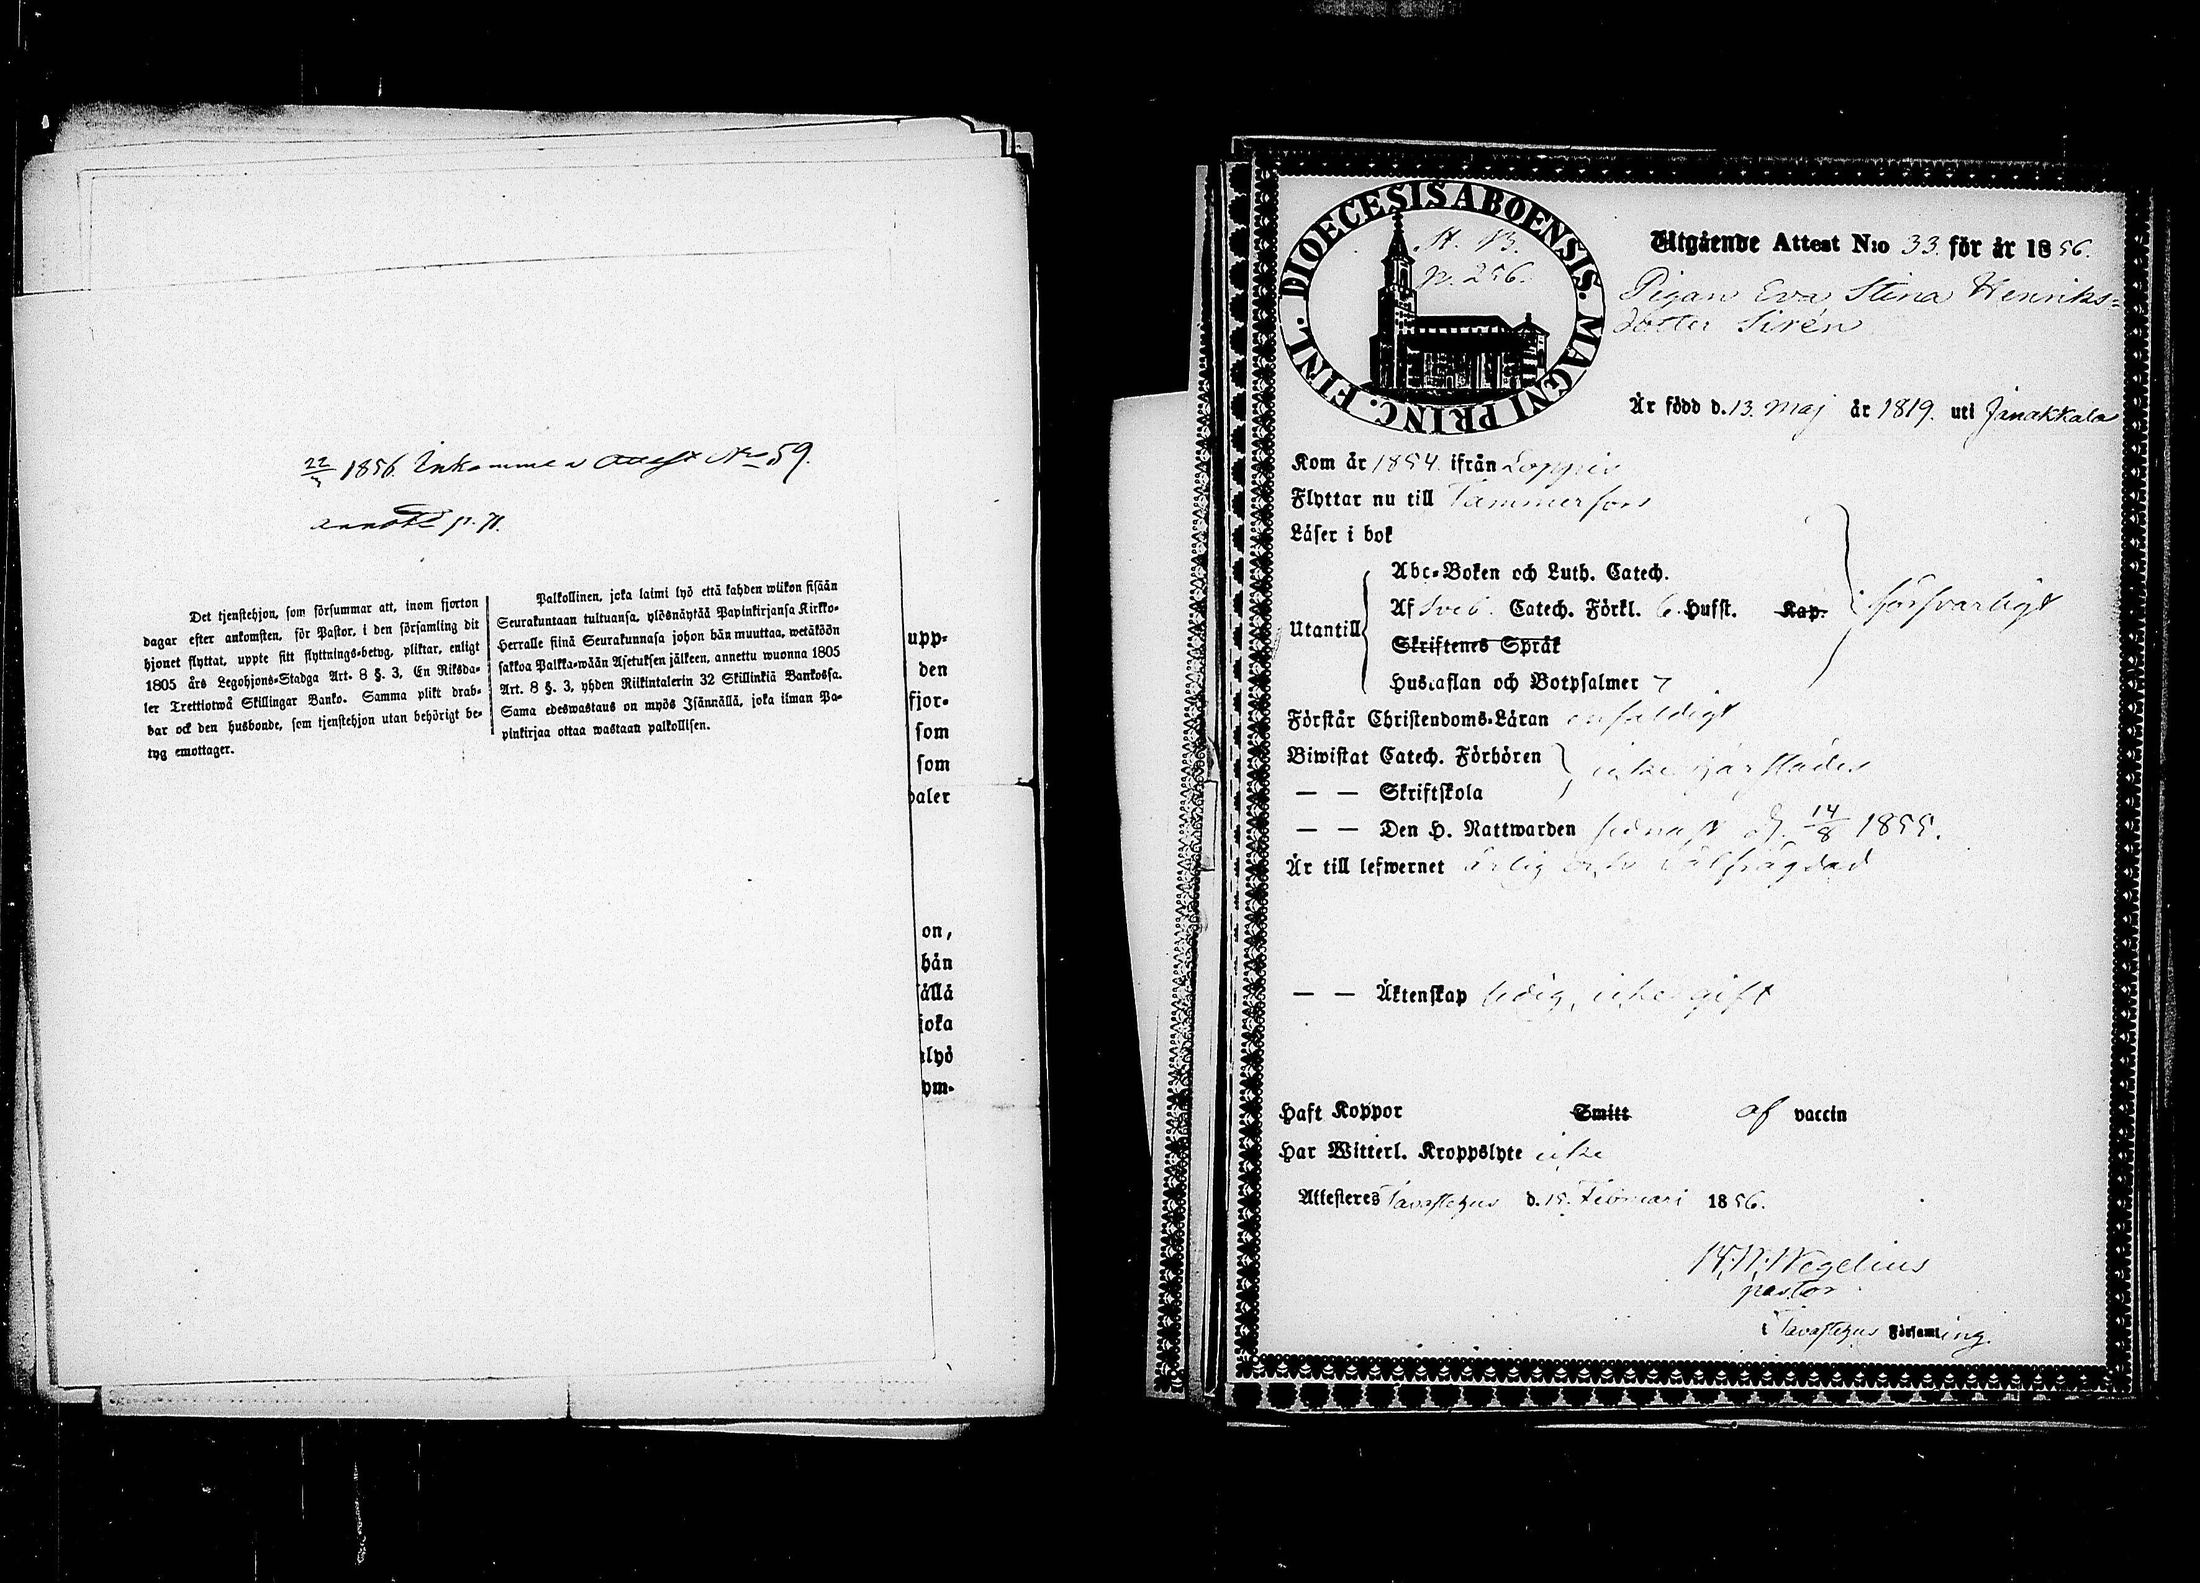 22/3 1856. Inkommen attest No 59.
annot. p. 71.
Det tjenstehjon, som försummar att, inom fjorton
dagar efter ankomsten, för Pastor, i den församling dit
hjonet flyttat, uppte sitt flyttnings-betyg, pliktar, enligt
1805 års Legohjons-Stadga Art. 8 §. 3, En Riksda-
ler Trettiotwå Skillingar Banko. Samma plikt drab-
bar ock den husbonde, som tjenstehjon utan behörigt be-
tyg emottager.
Palkollinen, joka laimi lyö että kahden wiikon sisään
Seurakuntaan tultuansa, ylösnäytää Papinkirjansa Kirkko-
Herralle siinä Seurakunnasa johon hän muuttaa, wetäköön
sakkoa Palkka-wään Asetuksen jälkeen, annettu wuonna 1805
Art. 8 §. 3, yhden Riikintalerin 32 Skillinkiä Bankossa.
Sama edeswastaus on myös Isännällä, joka ilman Pa-
pinkirjaa ottaa wastaan palkollisen.
upp-
den
fjor-
som
som
daler
on,
hän
ällä
joka
lyö
ym-
DIOECESIS ABOENSIS. MAGNI PRINC. FINL.
p. 256.
Utgående Attest N:o 33. för år 1856.
Pigan Eva Stina Henriks-
dotter Sirén
Är född d. 13. maj år 1819. uti Janakkala
Kom år 1854. ifrån Loppis
Flyttar nu till Tammerfors
Läser i bok
Abc-Boken och Luth. Catech.
Utantill Af Sveb. Catech. Förkl. 6. Hufst. Kap. försvarligt
Skriftenes Språk
Hustaflan och Botpsalmer 7
Förstår Christendoms-Läran enfaldigt
Biwistat Catech. Förhören icke härstädes
— — Skriftskola
— — Den H. Nattwarden sednast d. 14/8 1855.
Är till lefwernet ärlig och välfrägdad
— — Äktenskap ledig, icke gift
Haft Koppor Smitt af vaccin
Har Witterl. Kroppslyte icke
Attesteres Tavastehus d. 15. Februari 1856.
Wegelius
pastor
i Tavastehus Församling.